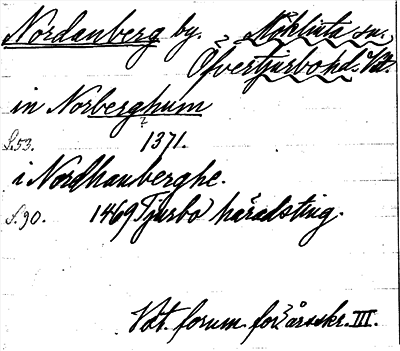 Nordanberg by. Möklinta sn.,
Öfvertjurbo hd. Vstm.
in Norberghum
S. 53. 1371.
i Nordhanberghe.
S. 90. 1469 Tjurbo häradsting.
Vstm. fornm. för:s årsskr. III.